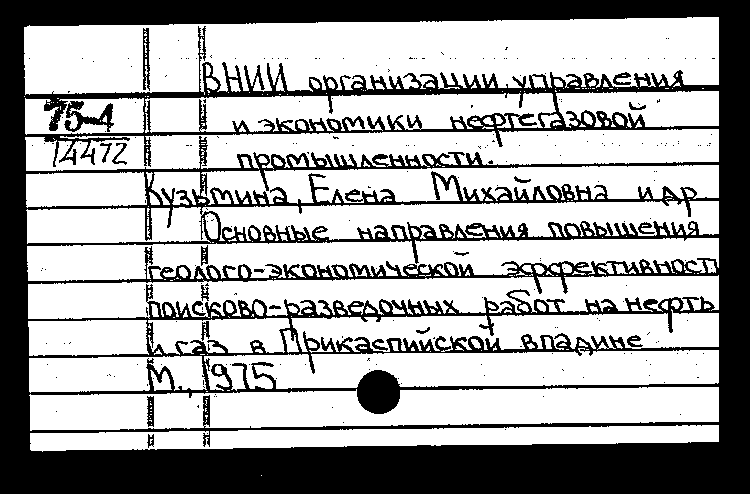 ВНИИ организации, управления
75-4
и экономики нефтегазовой
14472
промышленности.
Кузьмина, Елена Михайловна и др
Основные направления повышения
геолого-экономической эффективности
поисково-разведочных работ на нефть
и газ в Прикаспийской впадине
М., 1975